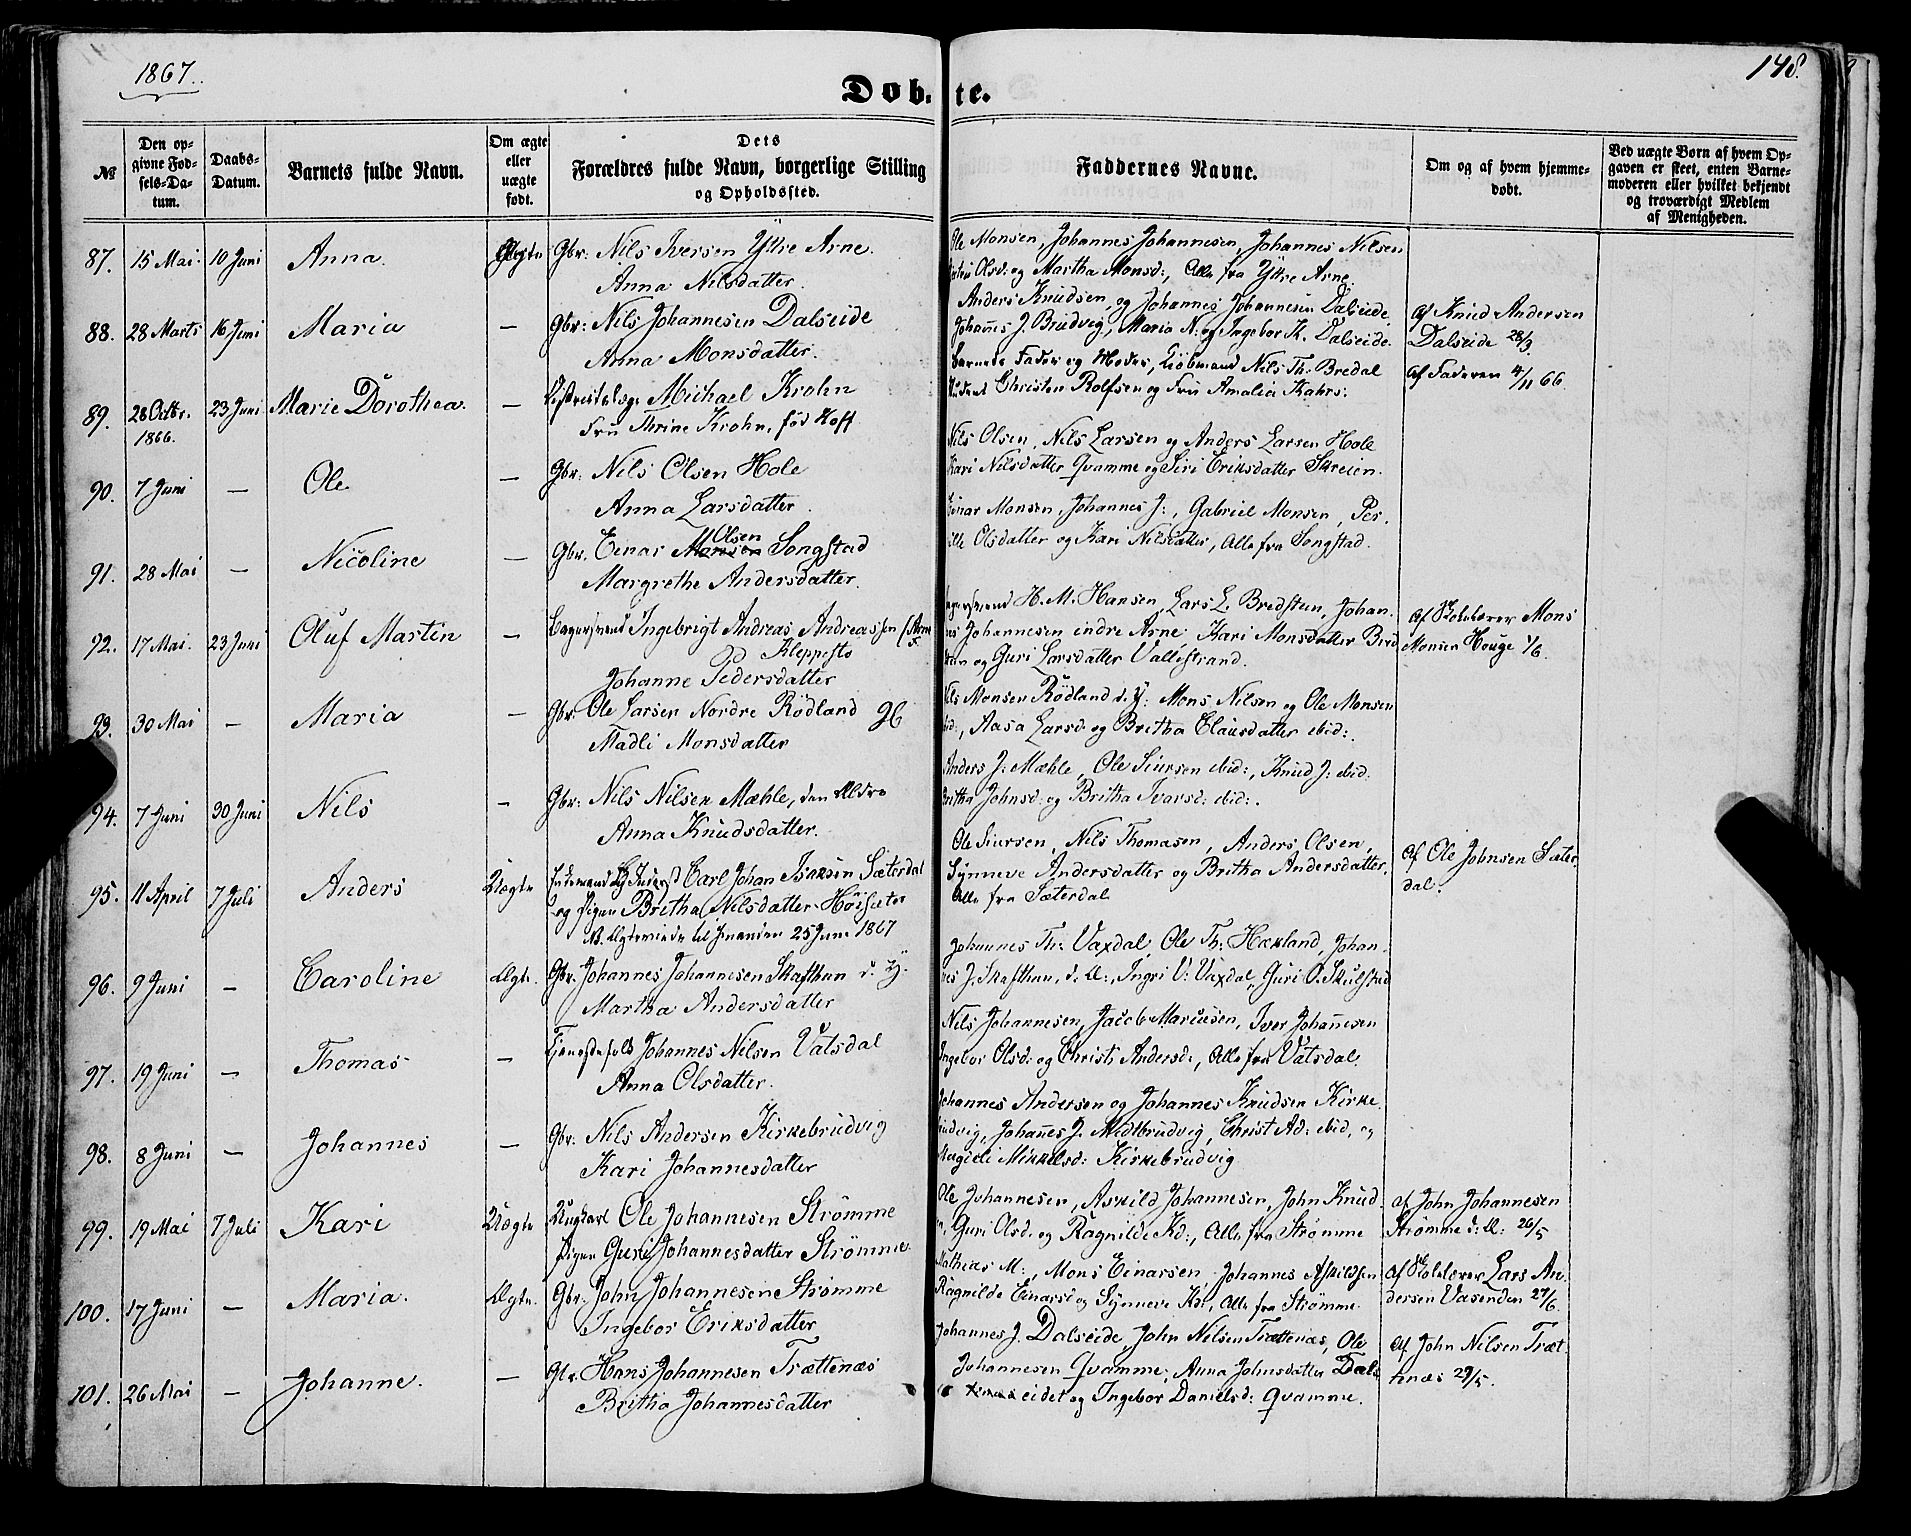 1867.
148.
Døbte.
№
Den opgivne Fødsels-Datum.
Daabs-Datum.
Barnets fulde Navn.
Om ægte eller uægte født.
Dets Forældres fulde Navn, borgerlige Stilling og Opholdssted.
Faddernes Navne.
Om og af hvem hjemmedøbt.
Ved uægte Børn af hvem Opgaven er skeet, enten Barnemoderen eller hvilket bekjendt og troværdigt Medlem af Menigheden.
87. 15 Mai. 10 Juni Anna. Ægte Gbr: Nils Iversen Yttre Arne.
Anna Nilsdatter.
Ole Monsen, Johannes Johannesen, Johannes Nilsen
Olsd: og Martha Monsd:, Alle fra Yttre Arne.
88. 28 Marts 16 Juni Maria — Gbr: Nils Johannesen Dalseide
Anna Monsdatter.
Anders Knudsen, og Johannes Johannesen Dalseide.
Johañes J. Brudvig, Maria N. og Ingebor K. Dalseide.
Af Knud Andersen
Dalseide 28/3.
89. 28 Octbr. 1866. 23 Juni Marie Dorothea. — Michael Krohn
Fru Thrine Krohn, fød Hoff
Barnets Fader og Moder, Kjøbmand Nils Th. Bredal
Student Christen Rolfsen og Fru Amalia Kahrs.
Af Faderen 4/11 66.
90. 7 Juni — Ole — Gbr: Nils Olsen Hole
Anna Larsdatter.
Nils Olsen, Nils Larsen og Anders Larsen Hole
Kari Nilsdatter Qvamme og Siri Eriksdatter Skreien.
91. 28 Mai — Nicoline — Gbr. Einar Monsen Olsen Songstad
Margrethe Andersdatter.
Einar Monsen, Johannes J:, Gabriel Monsen, Per-
nille Olsdatter og Kari Nilsdatter, Alle fra Songstad.
92. 17 Mai. 23 Juni Oluf Martin — Bagersvend Ingebrigt Andreas Andreassen (Arne
Kleppestø
Johanne Pedersdatter
Bagersvend H. M. Hansen, Lars L. Bredsteen, Johan-
nes Johannesen indre Arne Kari Monsdatter Bred
og Guri Larsdatter Vallestrand.
Af Skolelærer Mons
Monsen Houge 1/6.
93. 30 Mai — Maria — Gbr: Ole Larsen Nordre Rödland
Madli Monsdatter
Nils Monsen Rödland d. Y: Mons Nilsen og Ole Monsen
ibid:, Aasa Larsd: og Britha Clausdatter ibid:.
94. 7 Juni 30 Juni Nils — Gbr: Nils Nilsen Mæhle, den Ældre
Anna Knudsdatter.
Anders J: Mæhle, Ole Siursen ibid:, Knud J: ibid.
Britha Johnsd: og Britha Ivarsd: ibid:.
95. 11 April 7 Juli Anders Uægte Carl Johan Isaksen Sæterdal
og Pigen Britha Nilsdatter Höisæter
til 25 Juni 1867
Ole Siursen, Nils Thomasen, Anders Olsen,
Synneve Andersdatter og Britha Andersdatter.
Alle fra Sæterdal
Af Ole Johnsen Sæter-
dal.
96. 9 Juni — Caroline Ægte. Gbr. Johannes Johannesen Skafthun d. Y.
Martha Andersdatter
Johannes Th: Vaxdal, Ole Th: Hæxland, Johan-
nes J. Skafthun, d. Æ:, Ingri V: Vaxdal, Guri O. Skulstad
97. 19 Juni — Thomas — Tjenestefolk Johannes Nilsen Vatsdal
Anna Olsdatter.
Nils Johannesen, Jacob Marcusen, Iver Johañesen
Ingebor Olsd: og Christi Andersd:, Alle fra Vatsdal.
98. 8 Juni — Johannes — Gbr: Nils Andersen Kirkebrudvig
Kari Johannesdatter
Johannes Andersen og Johannes Knudsen Kirke-
brudvig, Johañes J. Midtbrudvig, Christ Ad: ibid, og
Mikkelsd: Kirkebrudvig
99. 19 Mai 7 Juli Kari Uægte Ungkarl Ole Johannesen Strömme
Pigen Guri Johannesdatter Strömme.
Ole Johannesen, Askild Johannesen, John Knud-
Guri Olsd. og Ragnilde Kd:, Alle fra Strömme
Af John Johannesen
Strömme d: Æ: 26/5
100. 17 Juni — Maria. Ægte. Gbr. John Johannesen Strömme
Ingebor Eriksdatter
Mathias M:, Mons Einarsen, Johannes Askildsen
Ragnilde Einarsd og Synneve Kd:, Alle fra Strömme.
Af Skolelærer Lars An-
dersen Vasenden 27/6.
101. 26 Mai — Johanne. — Gbr. Hans Johannesen Trættenæs
Britha Johannesdatter
Johannes J. Dalseide, John Nilsen Trættenæs, Ole
Johannesen Qvamme, Anna Johnsdatter Dals
eidet og Ingebor Danielsd: Qvamme.
Af John Nilsen Træt-
tenæs 29/5.